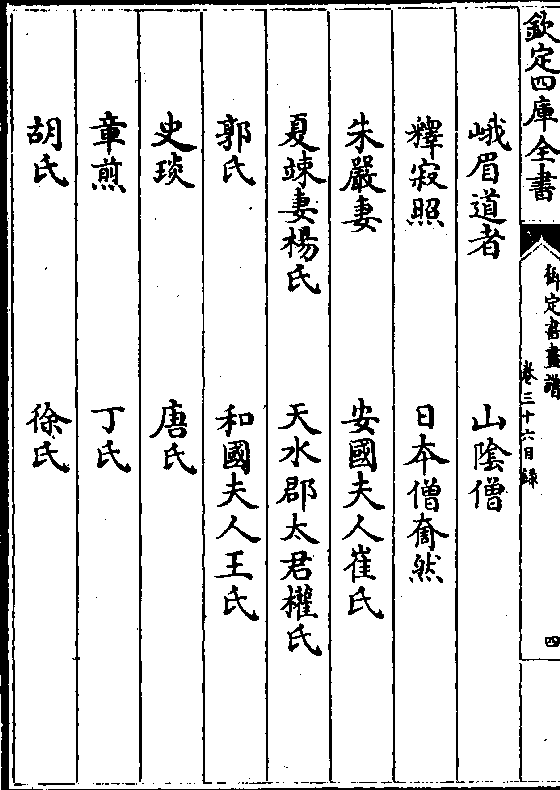 欽定四庫全書
御定書畫譜
卷三十六目錄
四
峨眉道者 山陰僧
釋寂照 日本僧奝然
朱嚴妻 安國夫人崔氏
夏竦妻楊氏 天水郡太君權氏
郭氏 和國夫人王氏
史琰 唐氏
章煎 丁氏
胡氏 徐氏